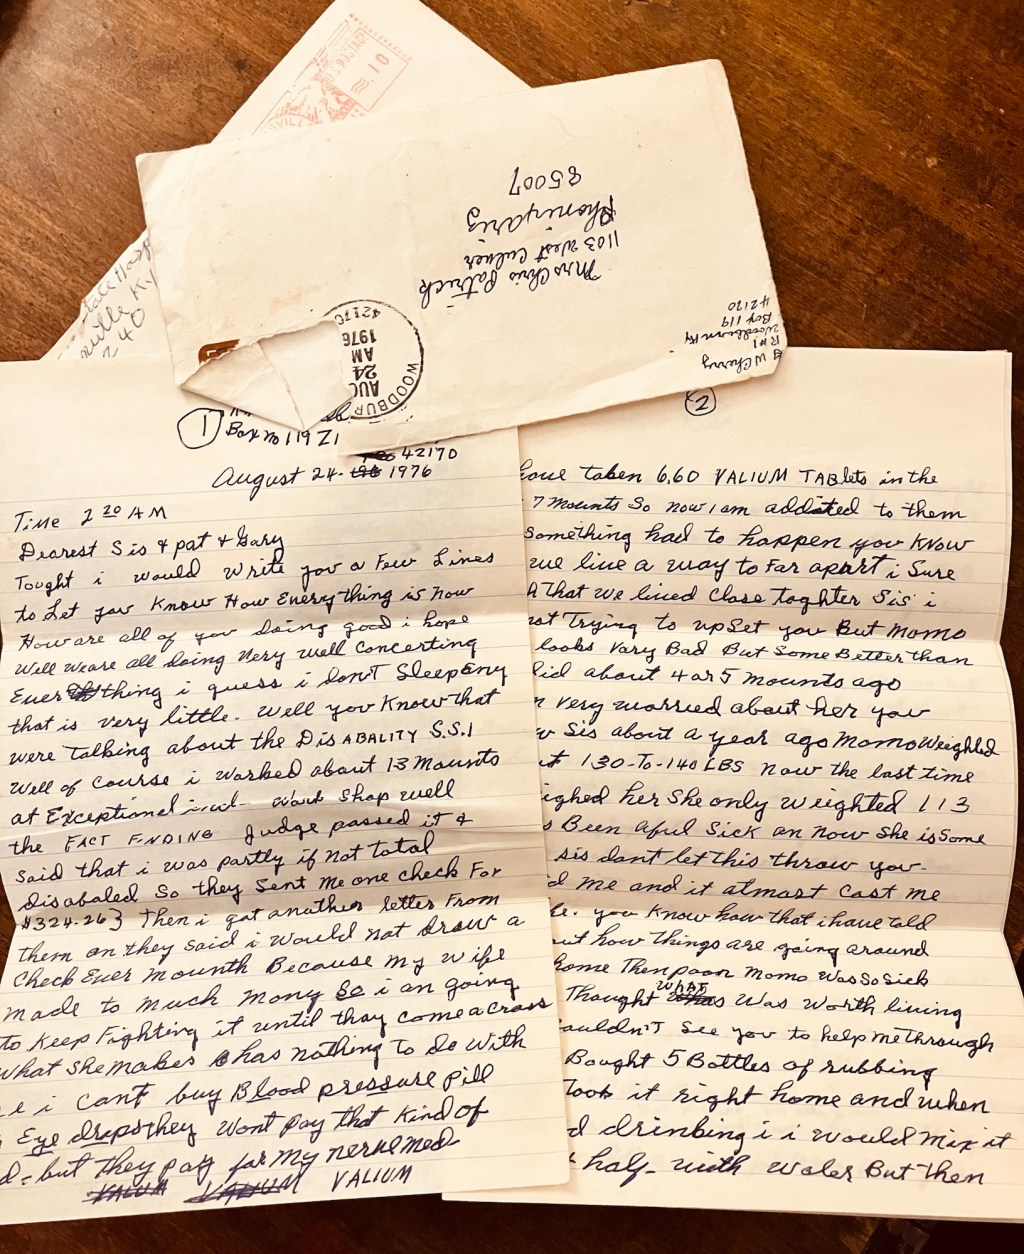 10
Ky
40
Mrs Chris Patrick
1103 West Culver
Phonixariz
85007
W Cherry
R#1
Woodburn Ky
Box 119
42170
WOODBUR
AUG
24
AM
1976
42170
1
Box no 119 Z1
42170
August 24- 1976
Time 2 20 AM
Dearest Sis & pat & Gary
Tought i would write you a Few Lines
to Let you Know How Everything is Now
How are all of you doing good i hope
Well we are all doing very well concerting
Everything i guess i don't Sleep Eny
that is very little. Well you Know that
were talking about the DisABALITY S.S.I
Well of Course i worked about 13 Mounts
at Exceptional Work Shop well
the FACT FINDING Judge passed it &
Said that i was partly if Not total
Disabaled So they Sent Me one check For
$324.26} Then i got another letter From
them an they Said i would Not draw a
Check Ever Mounth Because My wife
made to Much Mony So i an going
to Keep Fighting it until thay come a cross
what She makes has nothing to do with
i cant buy Blood pressure pill
Eye drips they Wont Pay that Kind of
but they pay for My nerve med-
VALIUM
2
have taken 6,60 VALIUM TABlets in the
7 Mounts So Now i am addated to them
Something had to happen you Know
we live a way to Far apart i Sure
that we lived Close Toghter Sis i
not Trying to upSet you But Momo
looks Vary Bad But Some Better than
did about 4 or 5 Mounts ago
very worried about her you
Sis about a year ago Momo Weighted
130-To-140 LBS Now the last time
her She only Weighted 113
Been aful Sick an Now She is Some
sis dant let this throw you-
me and it atmost Cast me
you Know how that i have told
how Things are going around
home Then poor Momo Was So Sick
Thought WHAT Was Worth living
couldn't See you to help Me through
Bought 5 Bottles of rubbing
Took it right home and when
drinbing i i would Mix it
half- with Water But then